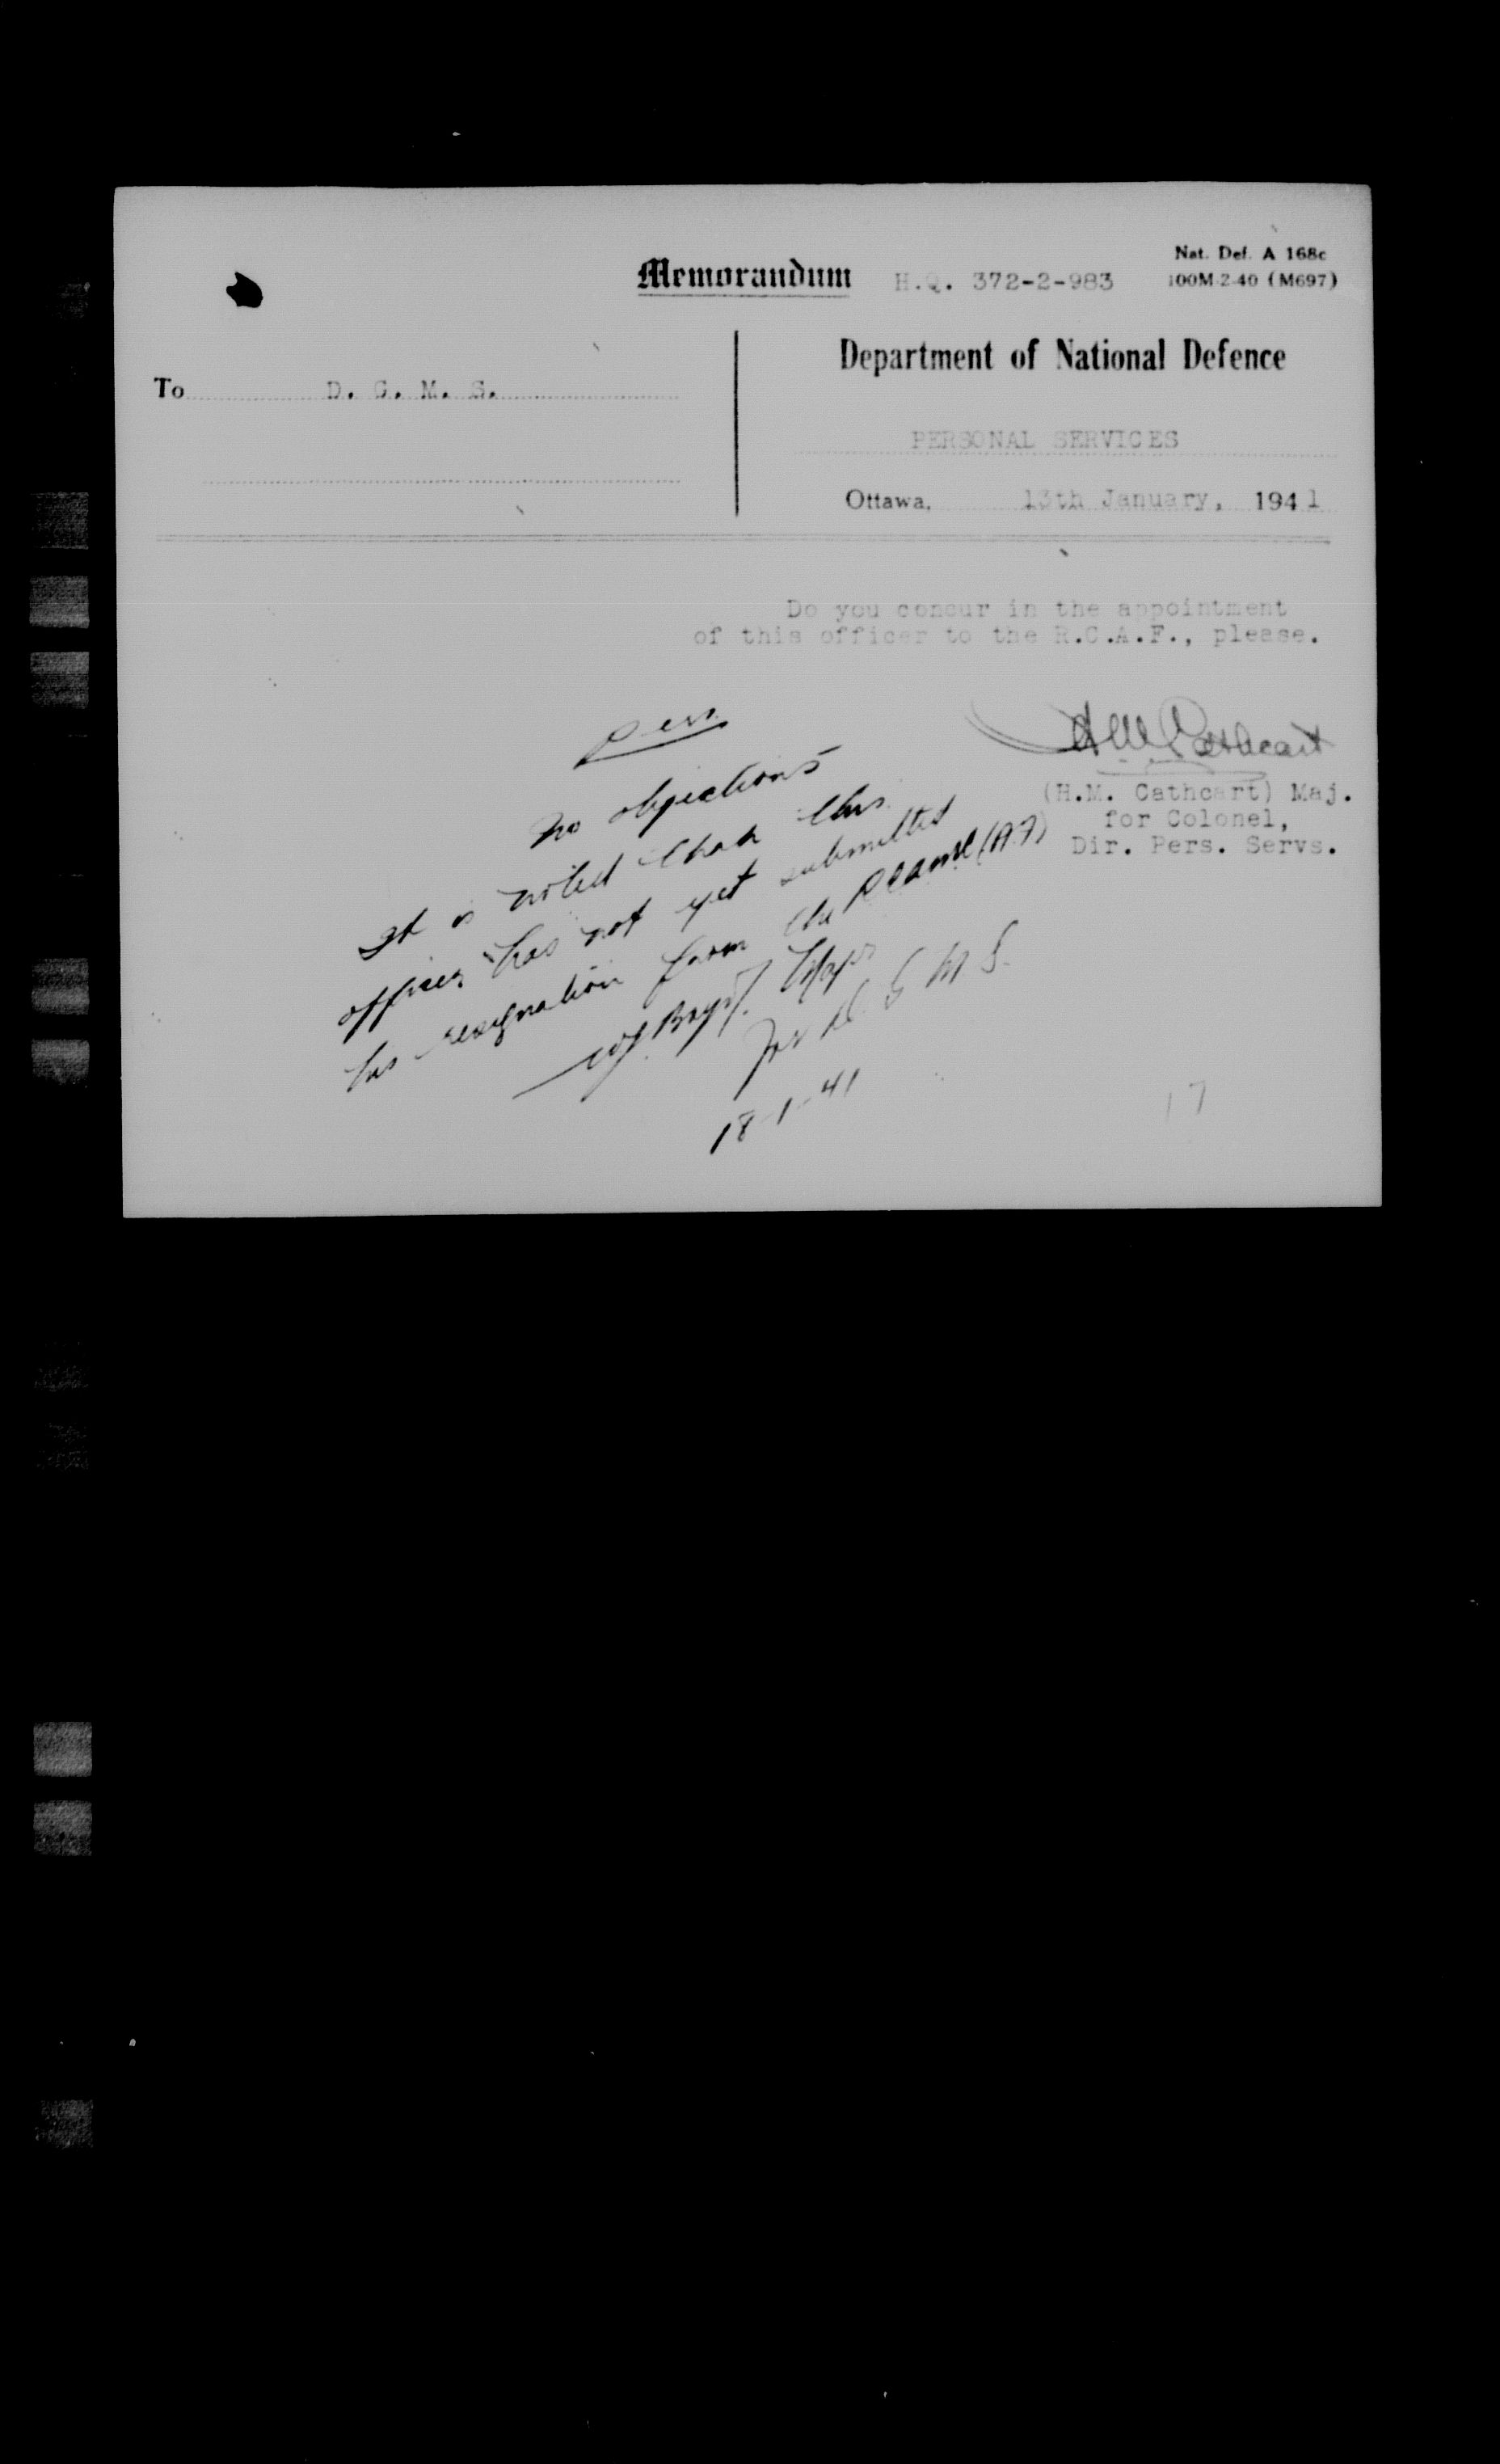 Memorandum
H.Q. 372-2-983
Nat. Def. A 168c
100M-2-40 (M697)
To D. G. M. S.
Department of National Defence
PERSONAL SERVICES
Ottawa, 13th January, 1941
Do you concur in the appointment
of this officer to the R.C.A.F., please.
H M Cathcart
(H.M. Cathcart) Maj.
for Colonel,
Dir. Pers. Servs.
Pers.
No objections
It is noted that this
officer has not yet submitted
his resignation from the RCAMC (A.F)
Major
for D. G M. S.
18-1-41
17